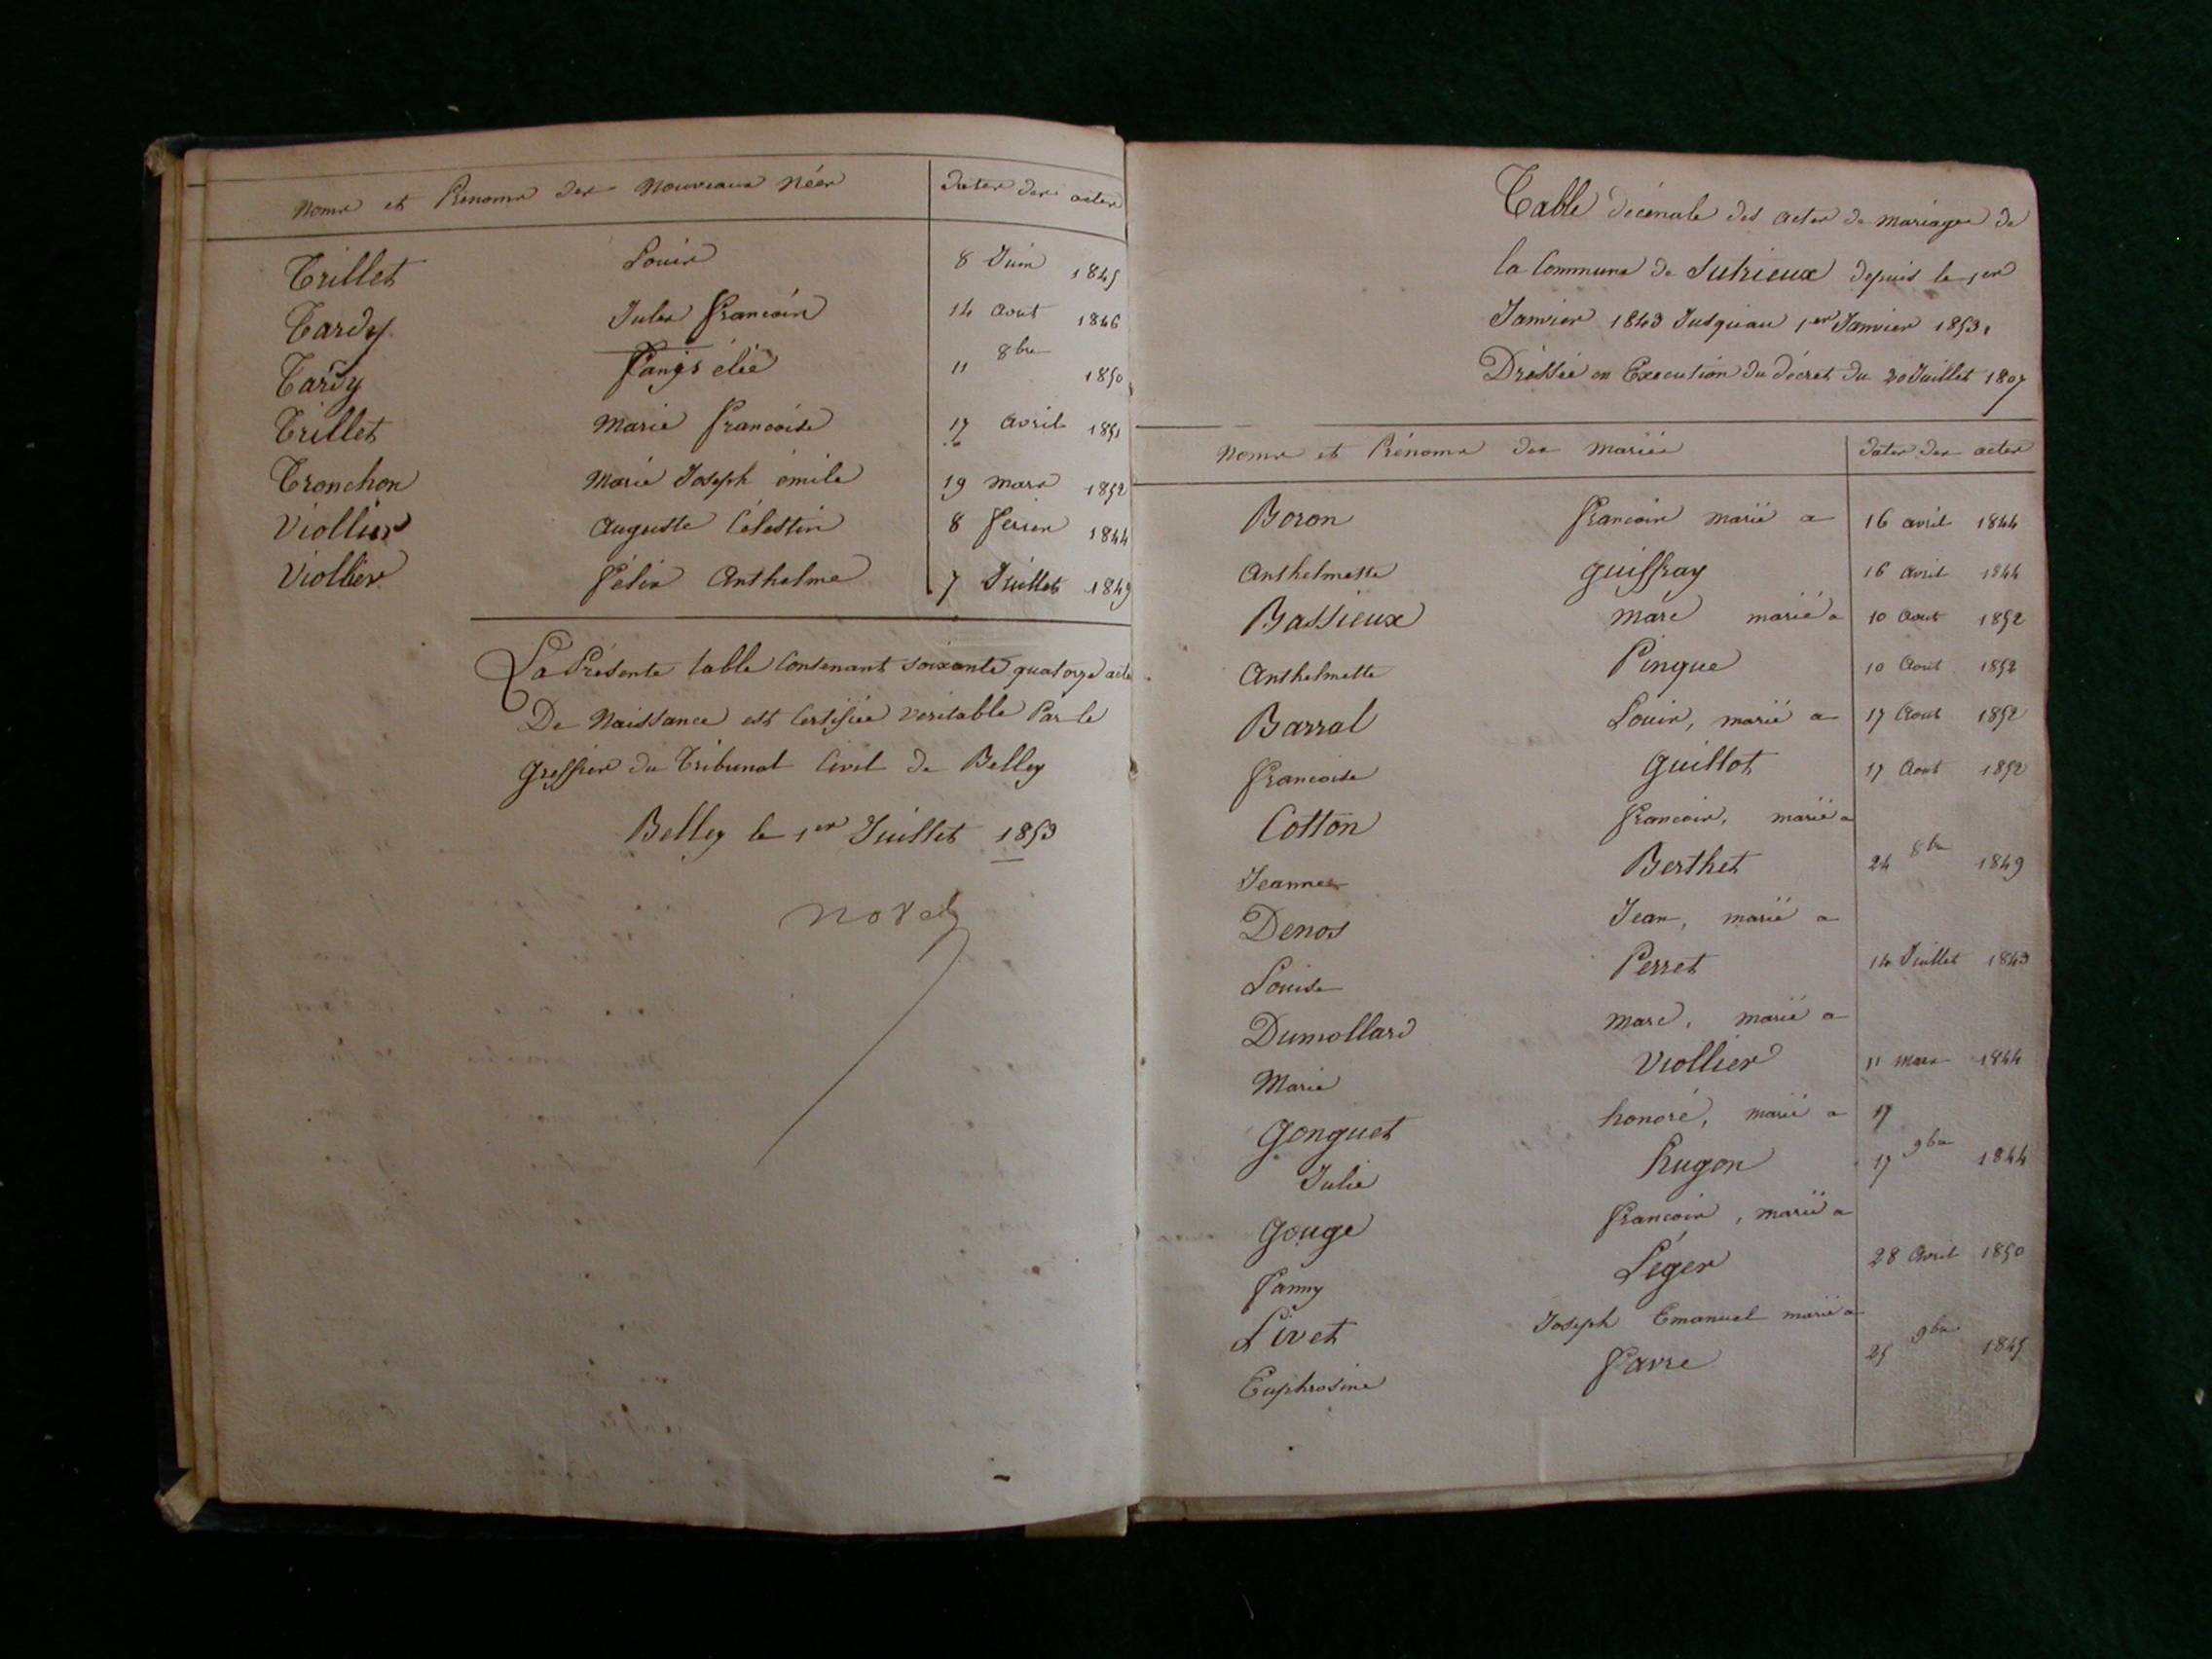 Noms et Prénoms des Nouveaux Nées dates des actes
Trillet Louis 8 Juin 1845
Tardy Jules francois 14 aout 1846
Tardy élie 11 8bre 1850
Trillet Marie francoise 17 avril 1851
Tronchon Marie Joseph émile 19 mars 1852
Viollier Auguste Célestin 8 fevrier 1844
Viollier félix Anthelme 7 Juillet 1849
La Présente table Contenant soixante quatorze actes
De Naissance est Certifiée véritable Par le
Greffier du Tribunal Civil de Belley
Belley le 1er Juillet 1853
Table décénale des actes de mariages de
la Commune de Sutrieux depuis le 1er
Janvier 1843 Jusqu'au 1er Janvier 1853,
Dréssée en Execution du décret du 20 Juillet 1807
Noms et Prénoms des mariés dates des actes
Boron francois marié a 16 avril 1844
Anthelmette guiffray 16 avril 1844
Bassieux marc marié a 10 Aout 1852
Anthelmette Pingue 10 Aout 1852
Barral Louis, marié a 17 Aout 1852
francoise guillot 17 Aout 1852
Cotton francois, marié a
Jeanne Berthet 24 8bre 1849
Denos Jean, marié a
Louise Perret 14 Juillet 1843
Dumollard marc, marié a
Marie Viollier 11 mars 1844
Gonguet honoré, marié a 17
Julie Hugon 17 9bre 1844
Gouge francois, marié a
fanny Léger 28 Avril 1850
Livet Joseph Emanuel marié a
Euphrosine favre 25 9bre 1845